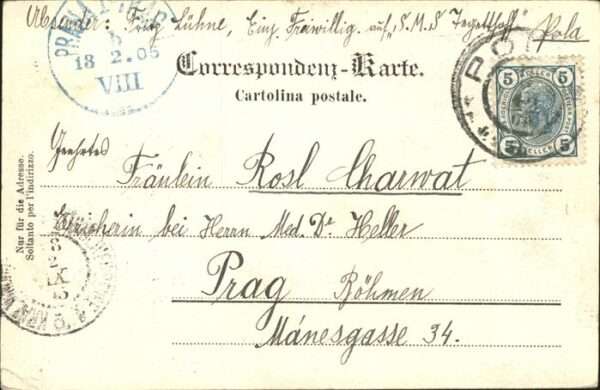 Absender: Fritz Lühne, Einj. Freiwillig. auf "S.M.S Tegetthoff" Pola
13 2.05
VIII
POLA
Correspondenz-Karte.
Cartolina postale.
5 HELLER 5
5 HELLER 5
Nur für die Adresse.
Soltanto per l'indirizzo.
Geehrtes
Fräulein Rosl Charwat
Erzieherin bei Herrn Med. Dr Heller
Prag Böhmen
Mánesgasse 34.